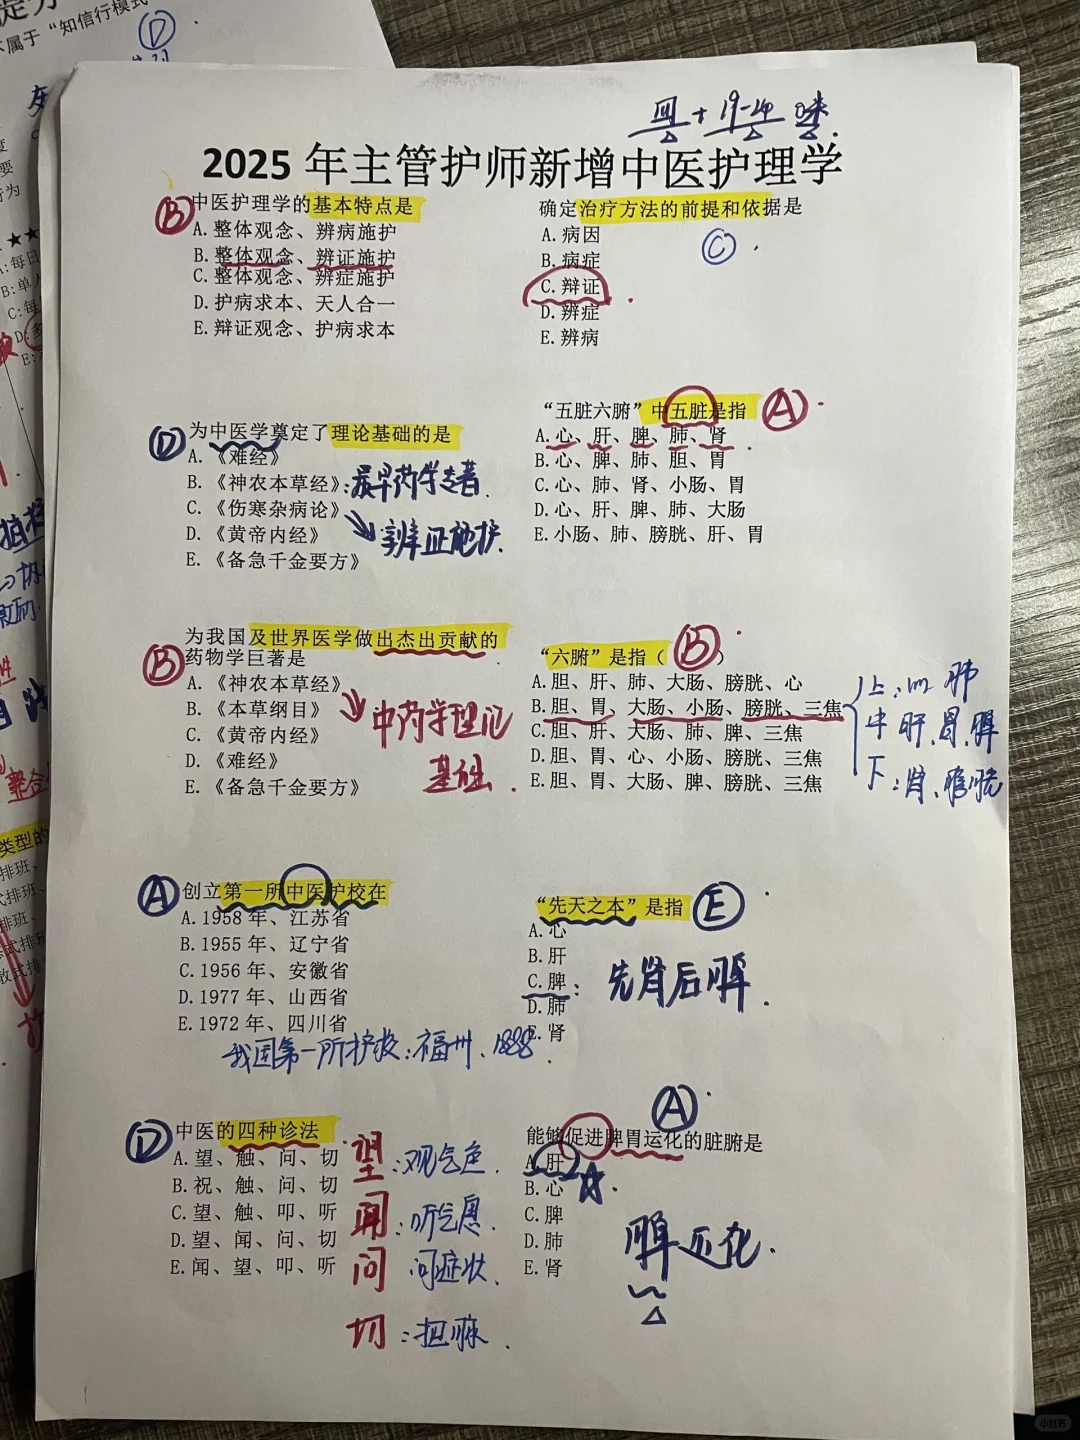 不属于“知信行模式
D
2025 年主管护师新增中医护理学
B
中医护理学的基本特点是
A.整体观念、辨病施护
B.整体观念、辨证施护
C.整体观念、辨症施护
D.护病求本、天人合一
E.辩证观念、护病求本
确定治疗方法的前提和依据是
A.病因
B.病症
C.辩证
D.辨症
E.辨病
C
D
为中医学奠定了理论基础的是
A.《难经》
B.《神农本草经》:最早药学专著.
C.《伤寒杂病论》
D.《黄帝内经》
辨证施护.
E.《备急千金要方》
“五脏六腑”中五脏是指
A
A.心、肝、脾、肺、肾
B.心、脾、肺、胆、胃
C.心、肺、肾、小肠、胃
D.心、肝、脾、肺、大肠
E.小肠、肺、膀胱、肝、胃
B
为我国及世界医学做出杰出贡献的
药物学巨著是
A.《神农本草经》
B.《本草纲目》
C.《黄帝内经》
D.《难经》
E.《备急千金要方》
中药学理论
基础.
“六腑”是指（B）
A.胆、肝、肺、大肠、膀胱、心
B.胆、胃、大肠、小肠、膀胱、三焦
C.胆、肝、大肠、肺、脾、三焦
D.胆、胃、心、小肠、膀胱、三焦
E.胆、胃、大肠、脾、膀胱、三焦
上:心 肺
中 肝.胃.脾
下:肾、膀胱
A
创立第一所中医护校在
A.1958 年、江苏省
B.1955 年、辽宁省
C.1956 年、安徽省
D.1977 年、山西省
E.1972 年、四川省
我国第一所护校:福州、1888
“先天之本”是指
E
A.心
B.肝
C.脾
D.肺
E.肾
先肾后脾.
D
中医的四种诊法
A.望、触、问、切
B.祝、触、问、切
C.望、触、叩、听
D.望、闻、问、切
E.闻、望、叩、听
望:观气色.
闻:听气息.
问 问症状.
切:把脉.
A
能够促进脾胃运化的脏腑是
A.肝
B.心
C.脾
D.肺
E.肾
脾运化.
小红书